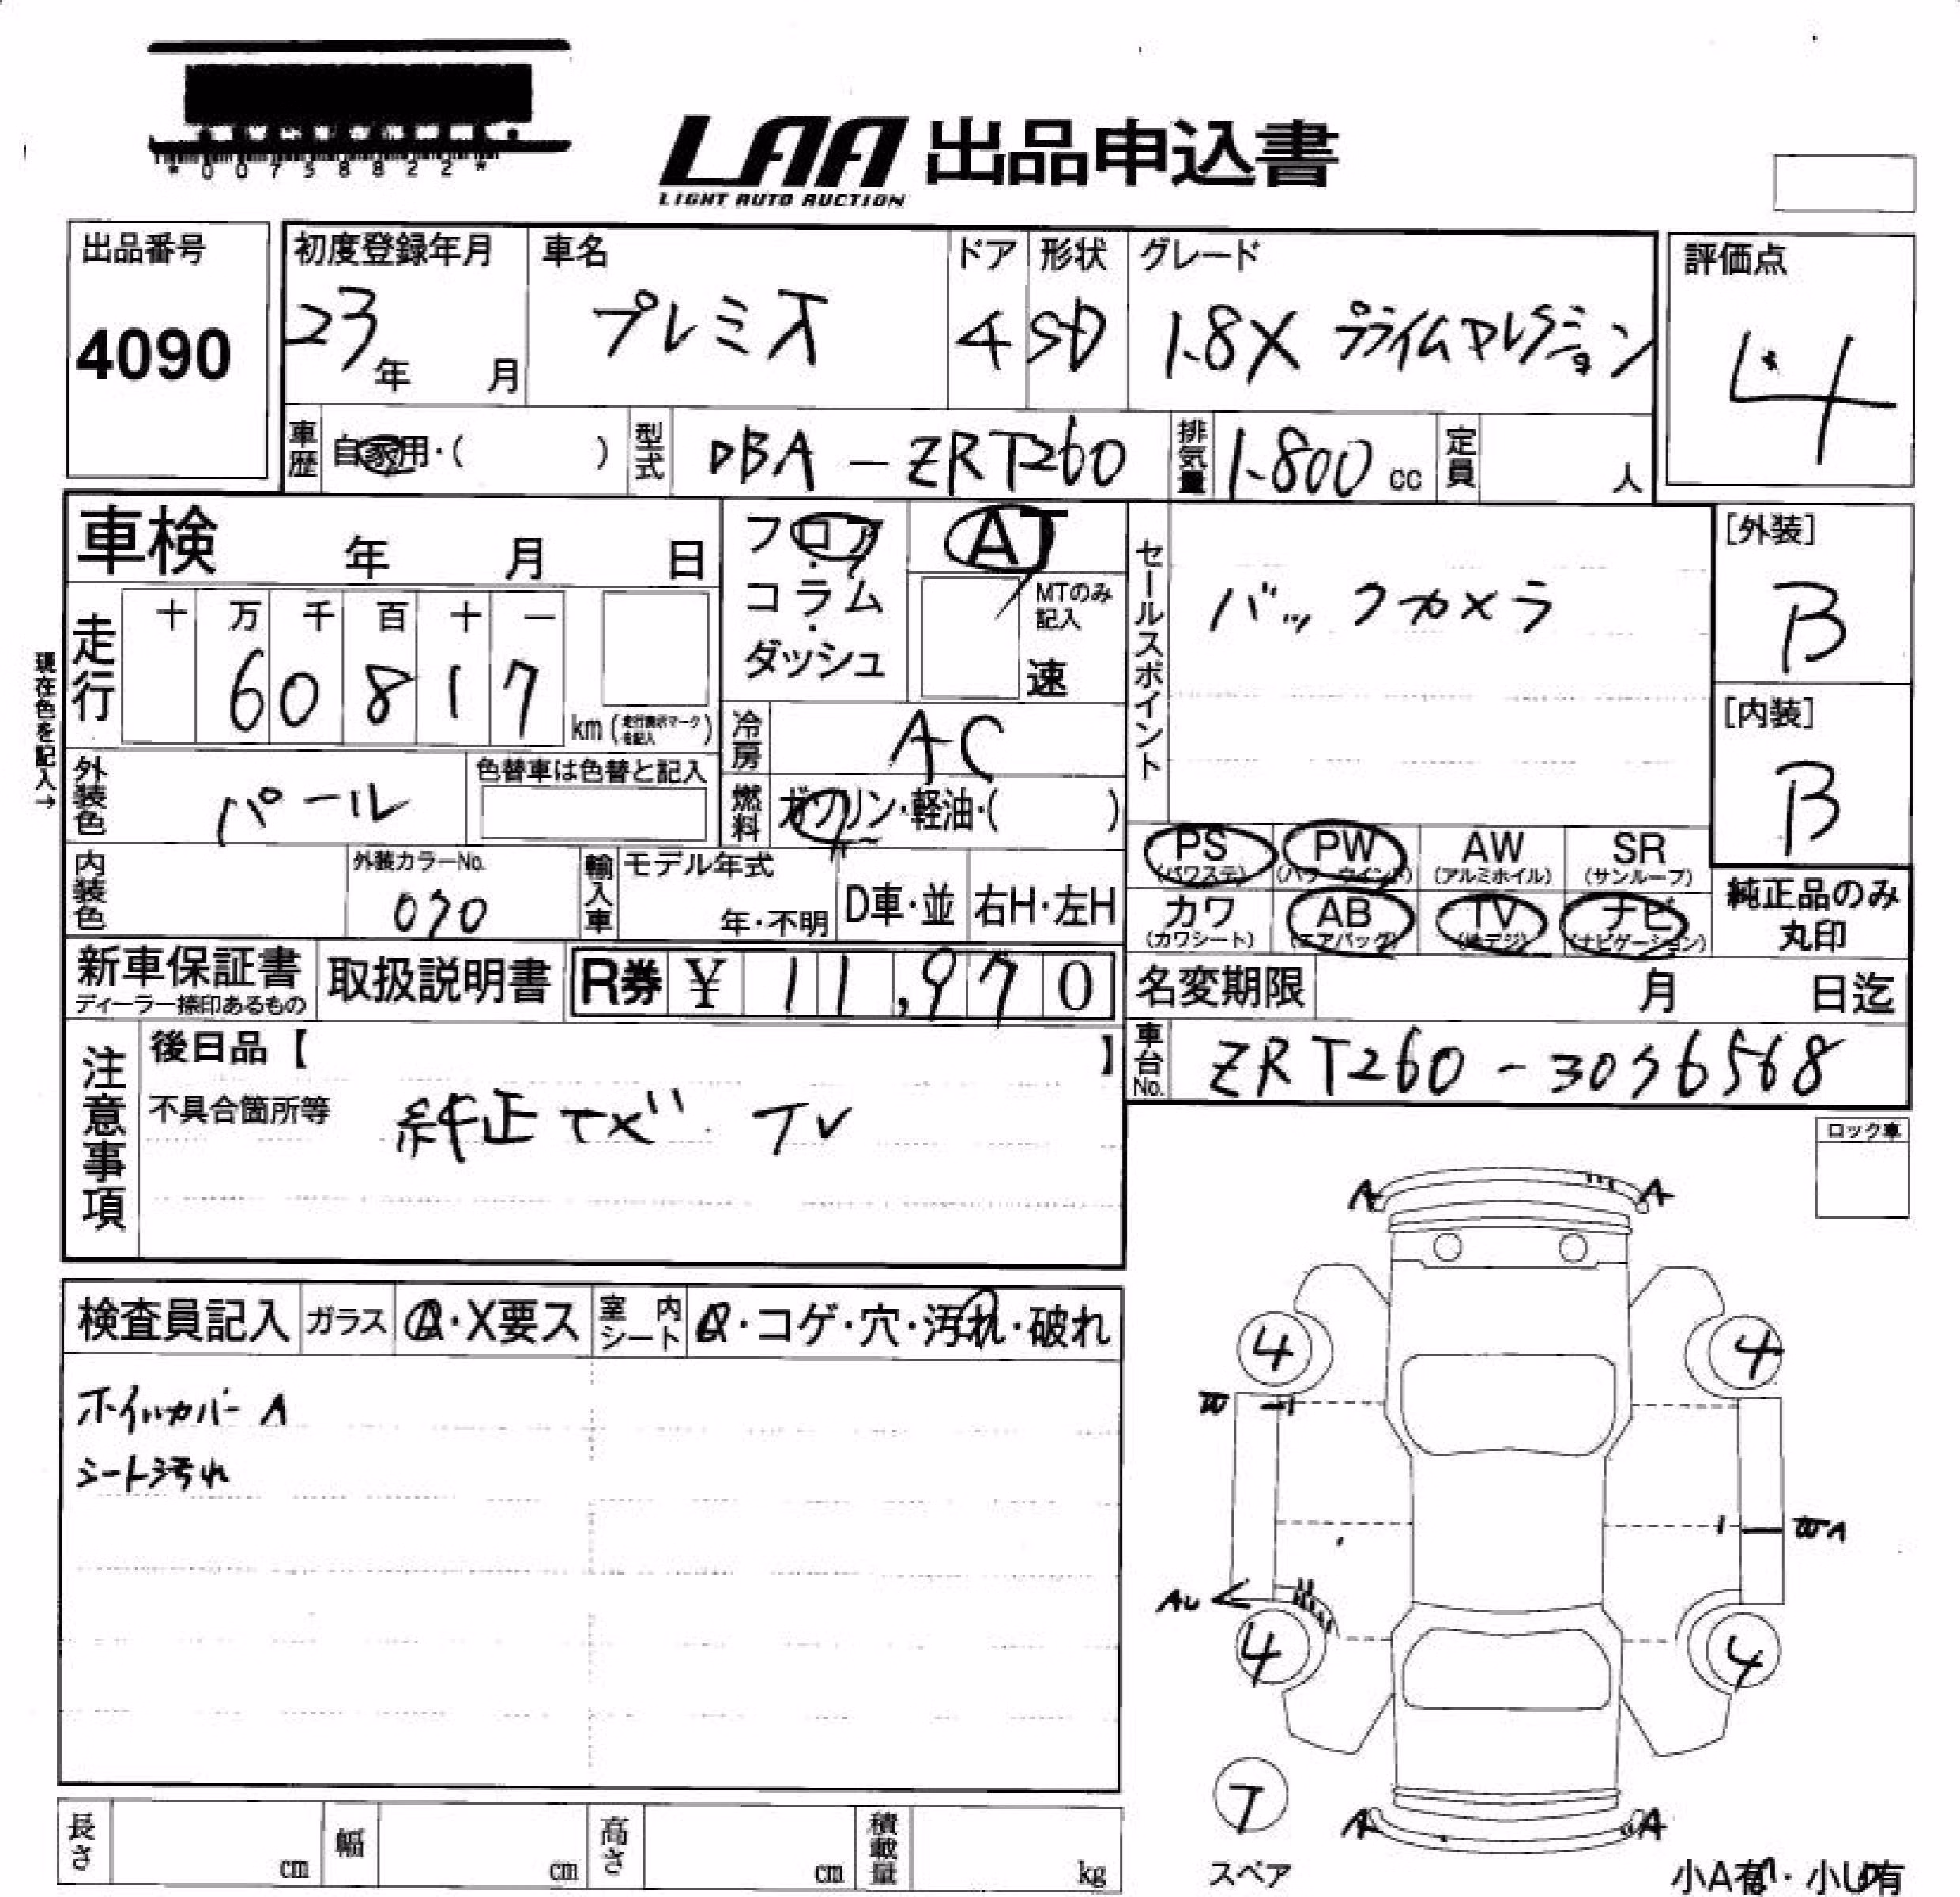 *00758822*
LAA 出品申込書
LIGHT AUTO AUCTION
出品番号
4090
初度登録年月
23年 月
車名
プレミオ
ドア
4
形状
SD
グレード
1.8X プライムセレクション
評価点
4
車歴 自家用・( )
型式 DBA-ZRT260
排気量 1.800 cc
定員 人
車検 年 月 日
フロア・コラム・ダッシュ
AT
MTのみ記入
速
現在色を記入→
走行
十 万 千 百 十 一
6 0 8 1 7
km (走行表示マークを記入)
冷房 AC
燃料 ガソリン・軽油・( )
外装色 パール
色替車は色替と記入
内装色
外装カラーNo.
070
輸入車
モデル年式
年・不明
D車・並
右H・左H
セールスポイント
バックカメラ
[外装]
B
[内装]
B
PS (パワステ)
PW (パワーウインド)
AW (アルミホイル)
SR (サンルーフ)
カワ (カワシート)
AB (エアバッグ)
TV (地デジ)
ナビ (ナビゲーション)
純正品のみ
丸印
新車保証書
ディーラー捺印あるもの
取扱説明書
R券 ¥ 11,970
名変期限 月 日迄
車台No. ZRT260-3056568
注意事項
後日品【 】
不具合箇所等
純正ナビ TV
ロック車
検査員記入
ガラス
A・X要ス
室内シート
・コゲ・穴・汚れ・破れ
ホイルカバー A
シート汚れ
A A
4 4
W
WA
AU
4 4
7
スペア
A A
小A有・小U有
長さ cm
幅 cm
高さ cm
積載量 kg